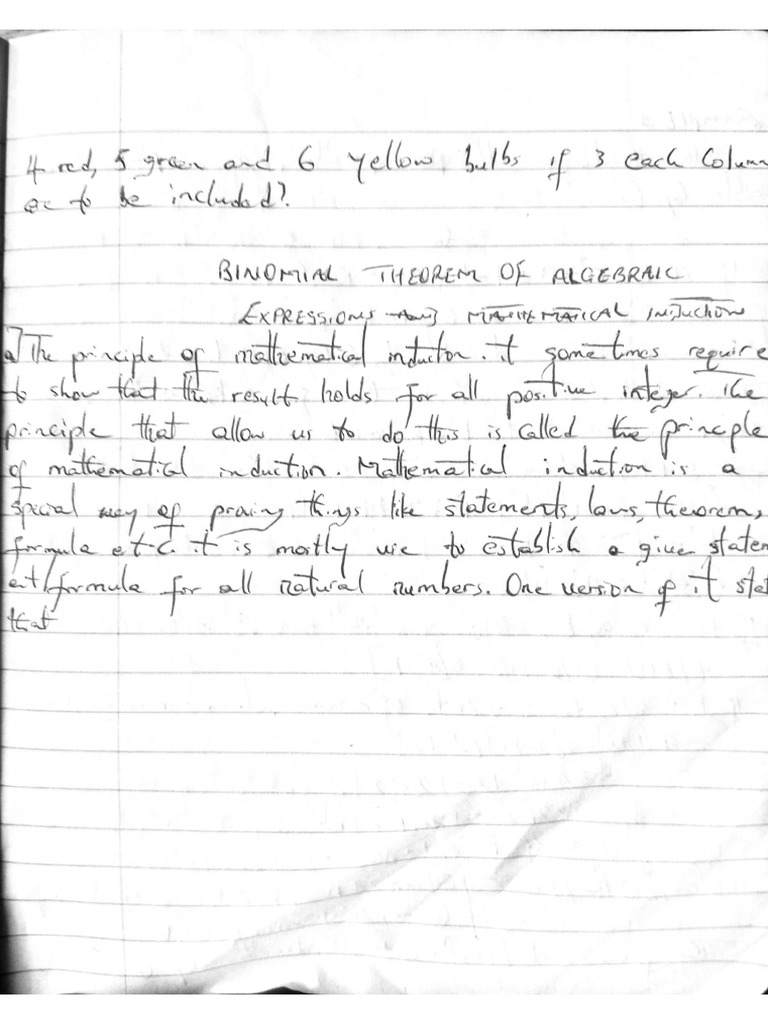 4 red, 5 green and 6 yellow bulbs if 3 each Colum
be included?.
BINOMIAL THEOREM OF ALGEBRAIC
EXPRESSIONS AND MATHEMATICAL INDUCTION
The principle of mathematical inductor. it sometimes require
to show that the result holds for all positive integer. The
principle that allow us to do this is called the principle
of mathematical induction. Mathematical induction is a
special way of proving things like statements, laws, theorem,
formula etc. it is mostly use to establish a give statem
ent/formula for all natural numbers. One version of it stat
that